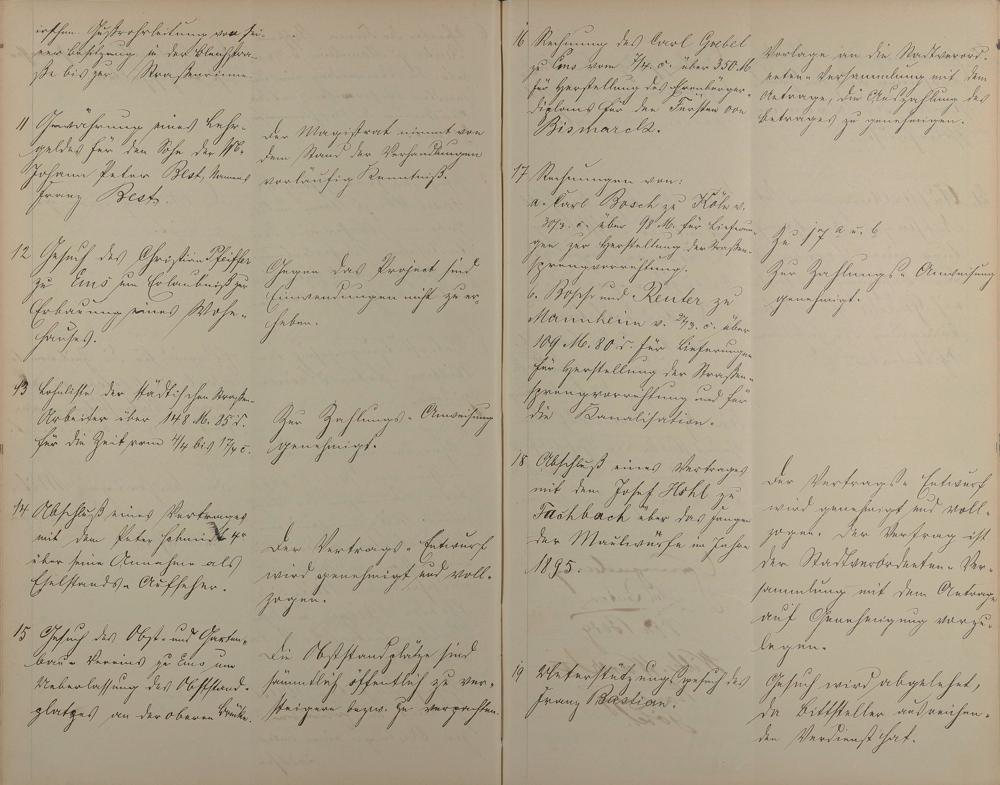 irischen Gußrohrleitung von sei-
ner Besitzung in der Bleichstra-
ße bis zur Straßenrinne.
11 Gewährung eines Lehr-
geldes für den Sohn der
Johann Peter Best, Namens
Franz Best.
Der Magistrat nimmt von
dem Stand der Verhandlungen
vorläufig Kenntniß.
12 Gesuch des Christian Pfeiffer
zu Ems um Erlaubniß zur
Erbauung eines Wohn-
hauses.
Gegen das Project sind
Einwendungen nicht zu er-
heben.
13 Lohnliste der städtischen Straßen-
Arbeiter über 148 M. 85 d.
für die Zeit vom 4/4 bis 17/4 c.
Zur Zahlungs-Anweisung
genehmigt.
14 Abschluß eines Vertrages
mit dem Peter Schmidt 4r
über seine Annahme als
Eselstands-Aufseher.
Der Vertrags-Entwurf
wird genehmigt und voll-
zogen.
15 Gesuch des Obst- und Garten-
bau-Vereins zu Ems um
Ueberlassung des Obststand-
platzes an der oberen Brücke.
Die Obststandplätze sind
sämmtlich öffentlich zu ver-
steigern bezw. zu verpachten.
16 Rechnung des Carl Goebel
zu Ems vom 7/4. c. über 350 M
für Herstellung des Ehrenbürger-
diploms für den Fürsten von
Bismarck.
Vorlage an die Stadtverord-
neten-Versammlung mit dem
Antrage, die Auszahlung des
Betrages zu genehmigen.
17 Rechnungen von:
a. Carl Bosch zu Köln v.
30/3. c. über 98 M. für Lieferun-
gen zur Herstellung der Straßen-
sprengvorrichtung.
b. Bopp und Reuter zu
Mannheim v. 27/3. c. über
109 M. 80 d. für Lieferungen
für Herstellung der Straßen-
sprengvorrichtung und für
die Kanalisation.
Zu 17 a u. b
Zur Zahlungs-Anweisung
genehmigt.
18 Abschluß eines Vertrages
mit dem Josef Hohl zu
Fachbach über das Fangen
der Maulwürfe im Jahre
1895.
Der Vertrags-Entwurf
wird genehmigt und voll-
zogen. Der Vertrag ist
der Stadtverordneten-Ver-
sammlung mit dem Antrage
auf Genehmigung vorzu-
legen.
19 Unterstützungsgesuch des
Franz Bastian.
Gesuch wird abgelehnt,
da Bittsteller ausreichen-
den Verdienst hat.